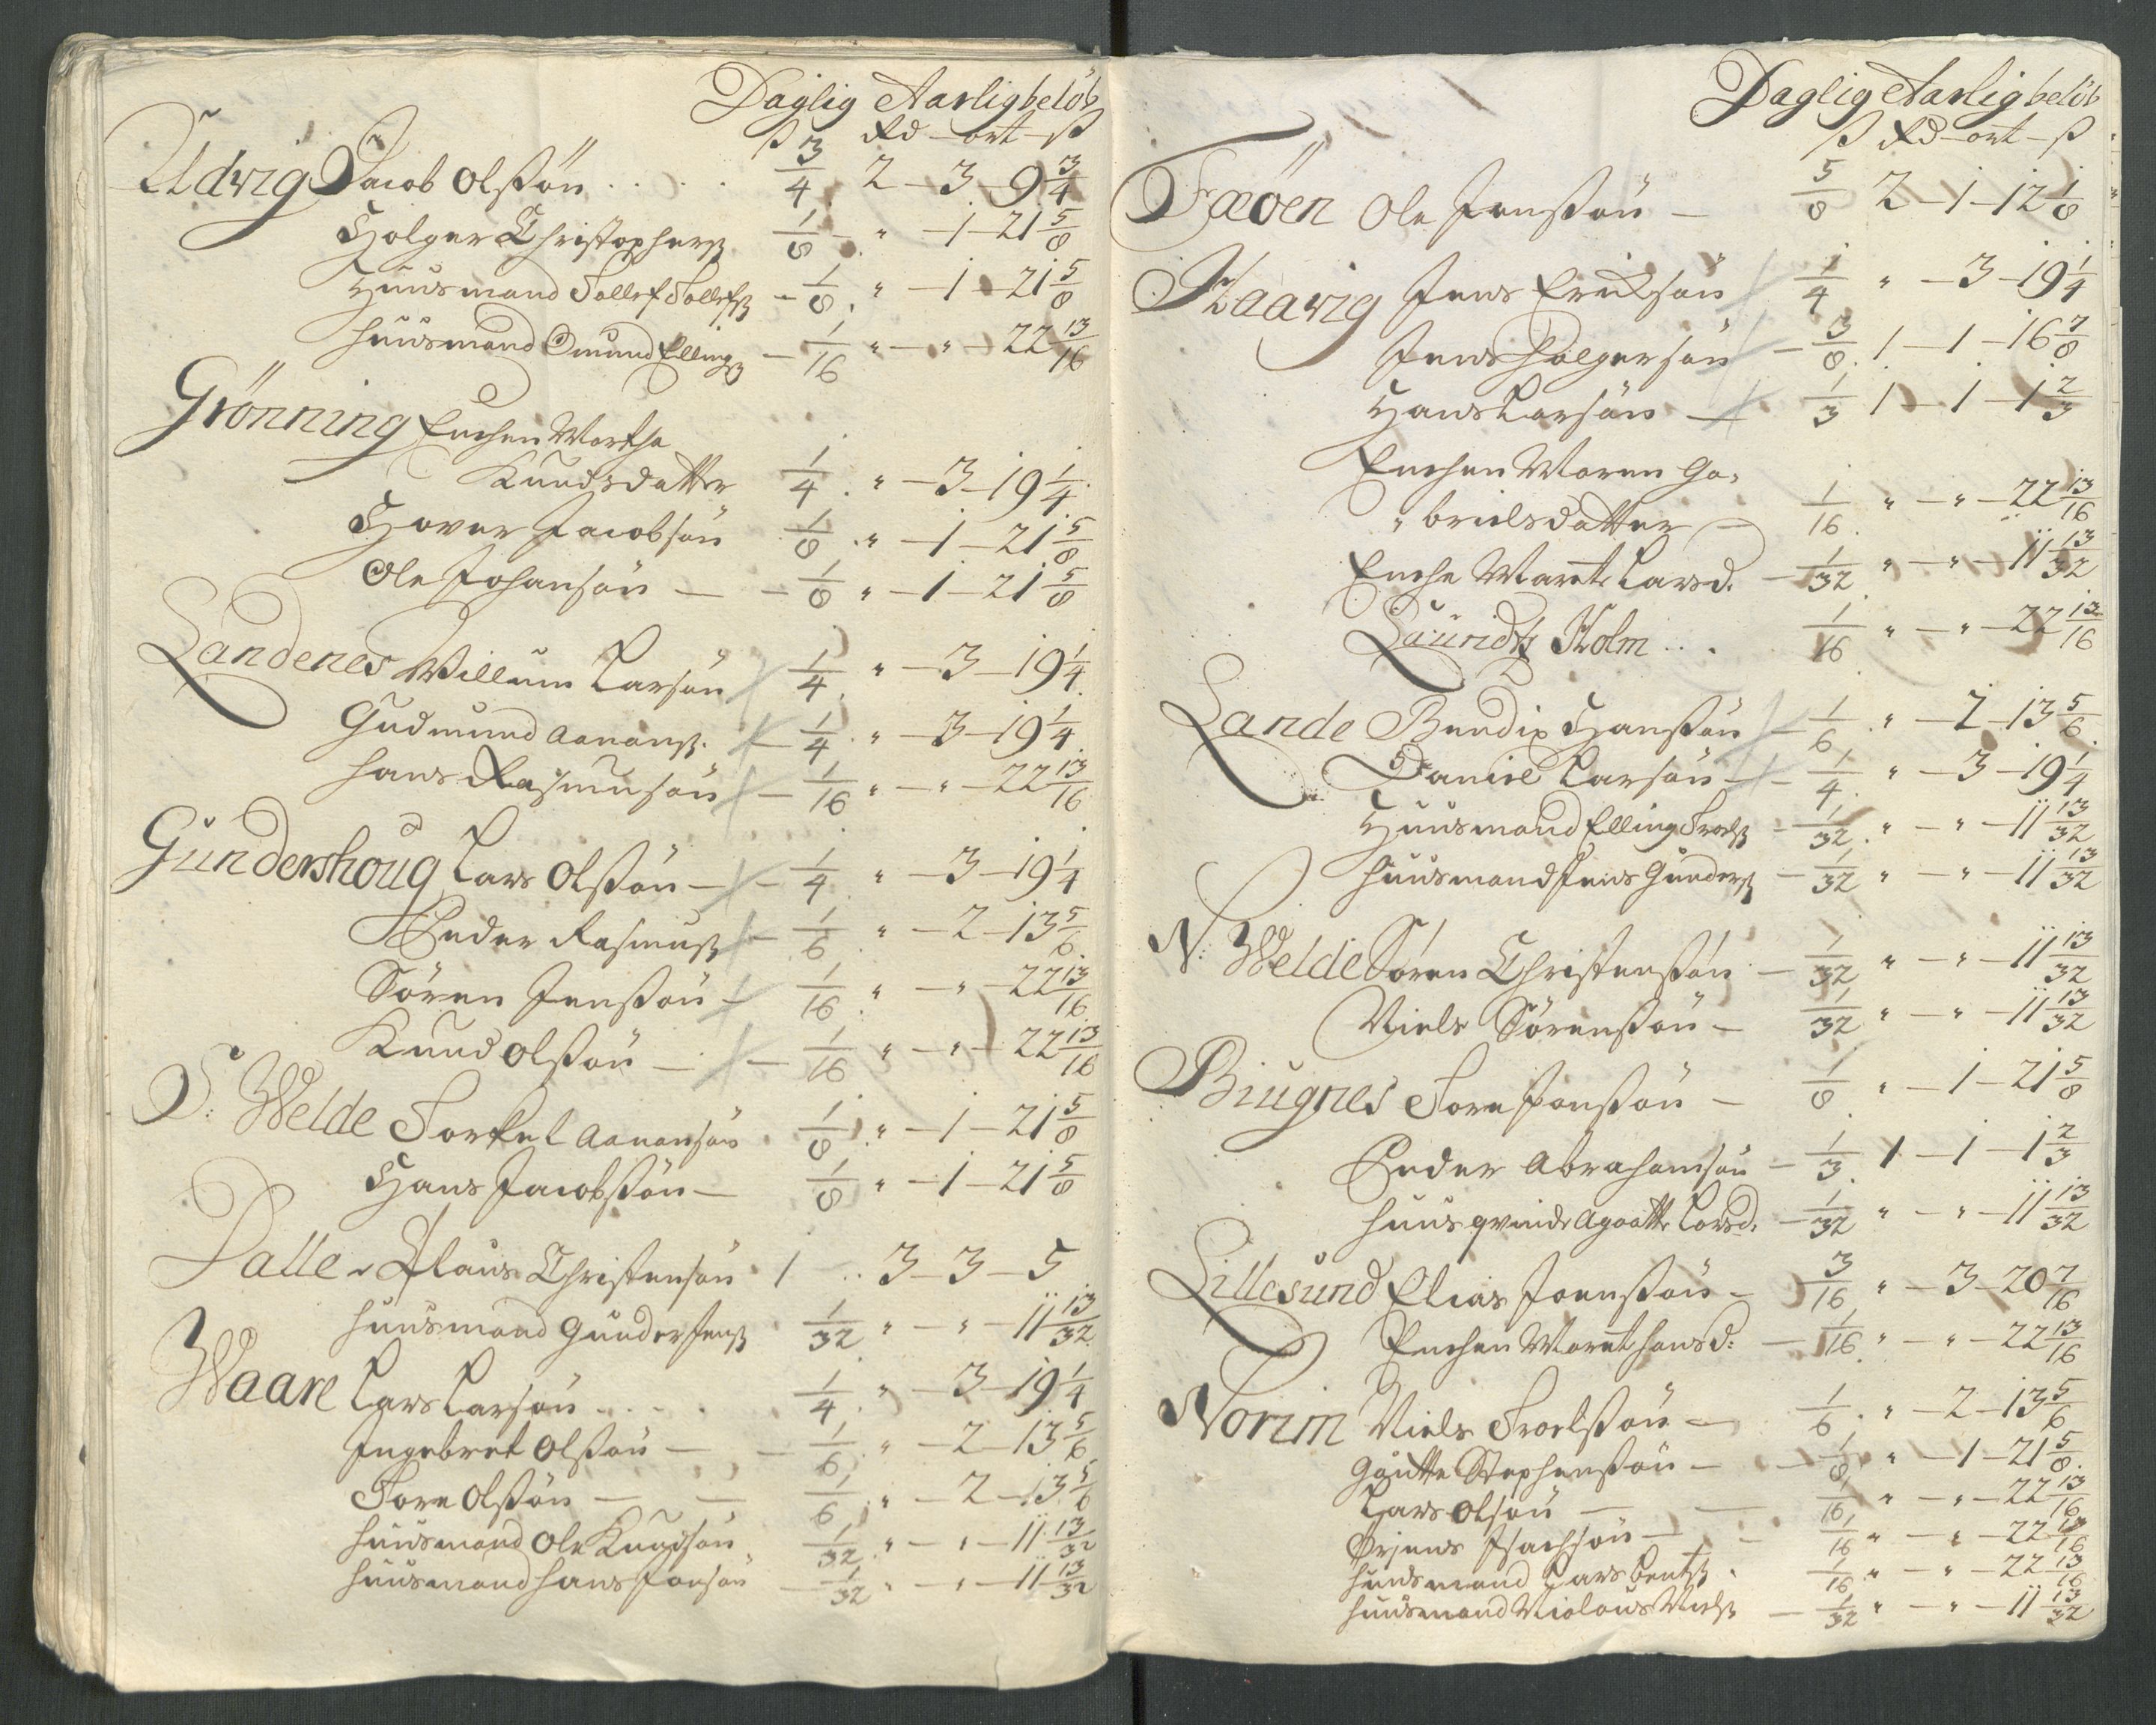 Daglig Aarlig beløb
ß Rd – ort – ß
Udvig Jacob Olssøn . . . . 3/4 2 – 3 – 9 3/4
Holger Christophers: 1/8 – " – 1 – 21 5/8
Huusmand Tollef Tollefs: – 1/8 . " – 1 – 21 5/8
Huusmand Omund Ellings: – 1/16 " – " – 22 13/16
Grönning Enchen Martha
Knudsdatter 1/4 . " – 3 – 19 1/4
Hover Jacobsön 1/8 . " – 1 – 21 5/8
Ole Johansön – – 1/8 " – 1 – 21 5/8
Landenes Willum Larsön 1/4 " – 3 – 19 1/4
Gudmund Aanans: – 1/4 . " – 3 – 19 1/4
Hans Rasmusön – 1/16 " – " – 22 13/16
Gundershoug Lars Olssön – – 1/4 " – 3 – 19 1/4
Peder Rasmuss: – 1/6 " – 2 – 13 5/6
Sören Jenssön – 1/16 . " – " – 22 13/16
Knud Olssön – – 1/16 " – " – 22 13/16
S: Welde Torkel Aanansön 1/8 . " – 1 – 21 5/8
Hans Jacobssön – 1/8 " – 1 – 21 5/8
Dalle Claus Christensön 1 . . 3 – 3 – 5
Huusmand Gunder Jens: 1/32 " – " – 11 13/32
Waare Lars Larsön . . . . 1/4 . " – 3 – 19 1/4
Ingebret Olssön – – 1/6 . " – 2 – 13 5/6
Tore Olssön – – 1/6 . " – 2 – 13 5/6
Huusmand Ole Knudsön 1/32 . " – " – 11 13/32
Huusmand Hans Jonsön – 1/32 " – " – 11 13/32
Daglig Aarlig beløb
ß Rd – ort – ß
Fæöen Ole Jenssön – 5/8 2 – 1 – 12 1/8
Haavig Jens Eriksön 1/4 " – 3 – 19 1/4
Jens Holgersön – 3/8 . 1 – 1 – 16 7/8
Hans Larsön – 1/3 1 – 1 – 1 2/3
Enchen Maren Ga-
"brielsdatter – 1/16 . " – " – 22 13/16
Enche Maret Larsd. – 1/32 " – " – 11 13/32
Lauridtz Holm . . . 1/16 " – " – 22 13/16
Lande Bendix Hanssön – 1/6 . " – 2 – 13 5/6
Daniel Larsön – – 1/4 . " – 3 – 19 1/4
Huusmand Elling Troels: – 1/32 . " – " – 11 13/32
Huusmand Jens Gunders: – 1/32 " – " – 11 13/32
N: Welde Sören Christenssön – 1/32 " – " – 11 13/32
Niels Sörenssön – 1/32 " – " – 11 13/32
Biugnes Tore Jonssön – 1/8 " – 1 – 21 5/8
Peder Abrahamsön – 1/3 1 – 1 – 1 2/3
Huusqvinde Agaatte Larsd. – 1/32 " – " – 11 13/32
Lillesund Elias Joenssön – 3/16 " – 3 – 20 7/16
Enchen Maret Hansd: – 1/16 . " – " – 22 13/16
Norim Niels Troelssön – 1/6 . " – 2 – 13 5/6
Gautte Stephenssön – – 1/8 " – 1 – 21 5/8
Lars Olsön – – 1/16 " – " – 22 13/16
Örjens Isachsön – – 1/16 " – " – 22 13/16
Huusmand Lars Bents: . 1/16 " – " – 22 13/16
Huusmand Niolaus Niels: – 1/32 " – " – 11 13/32